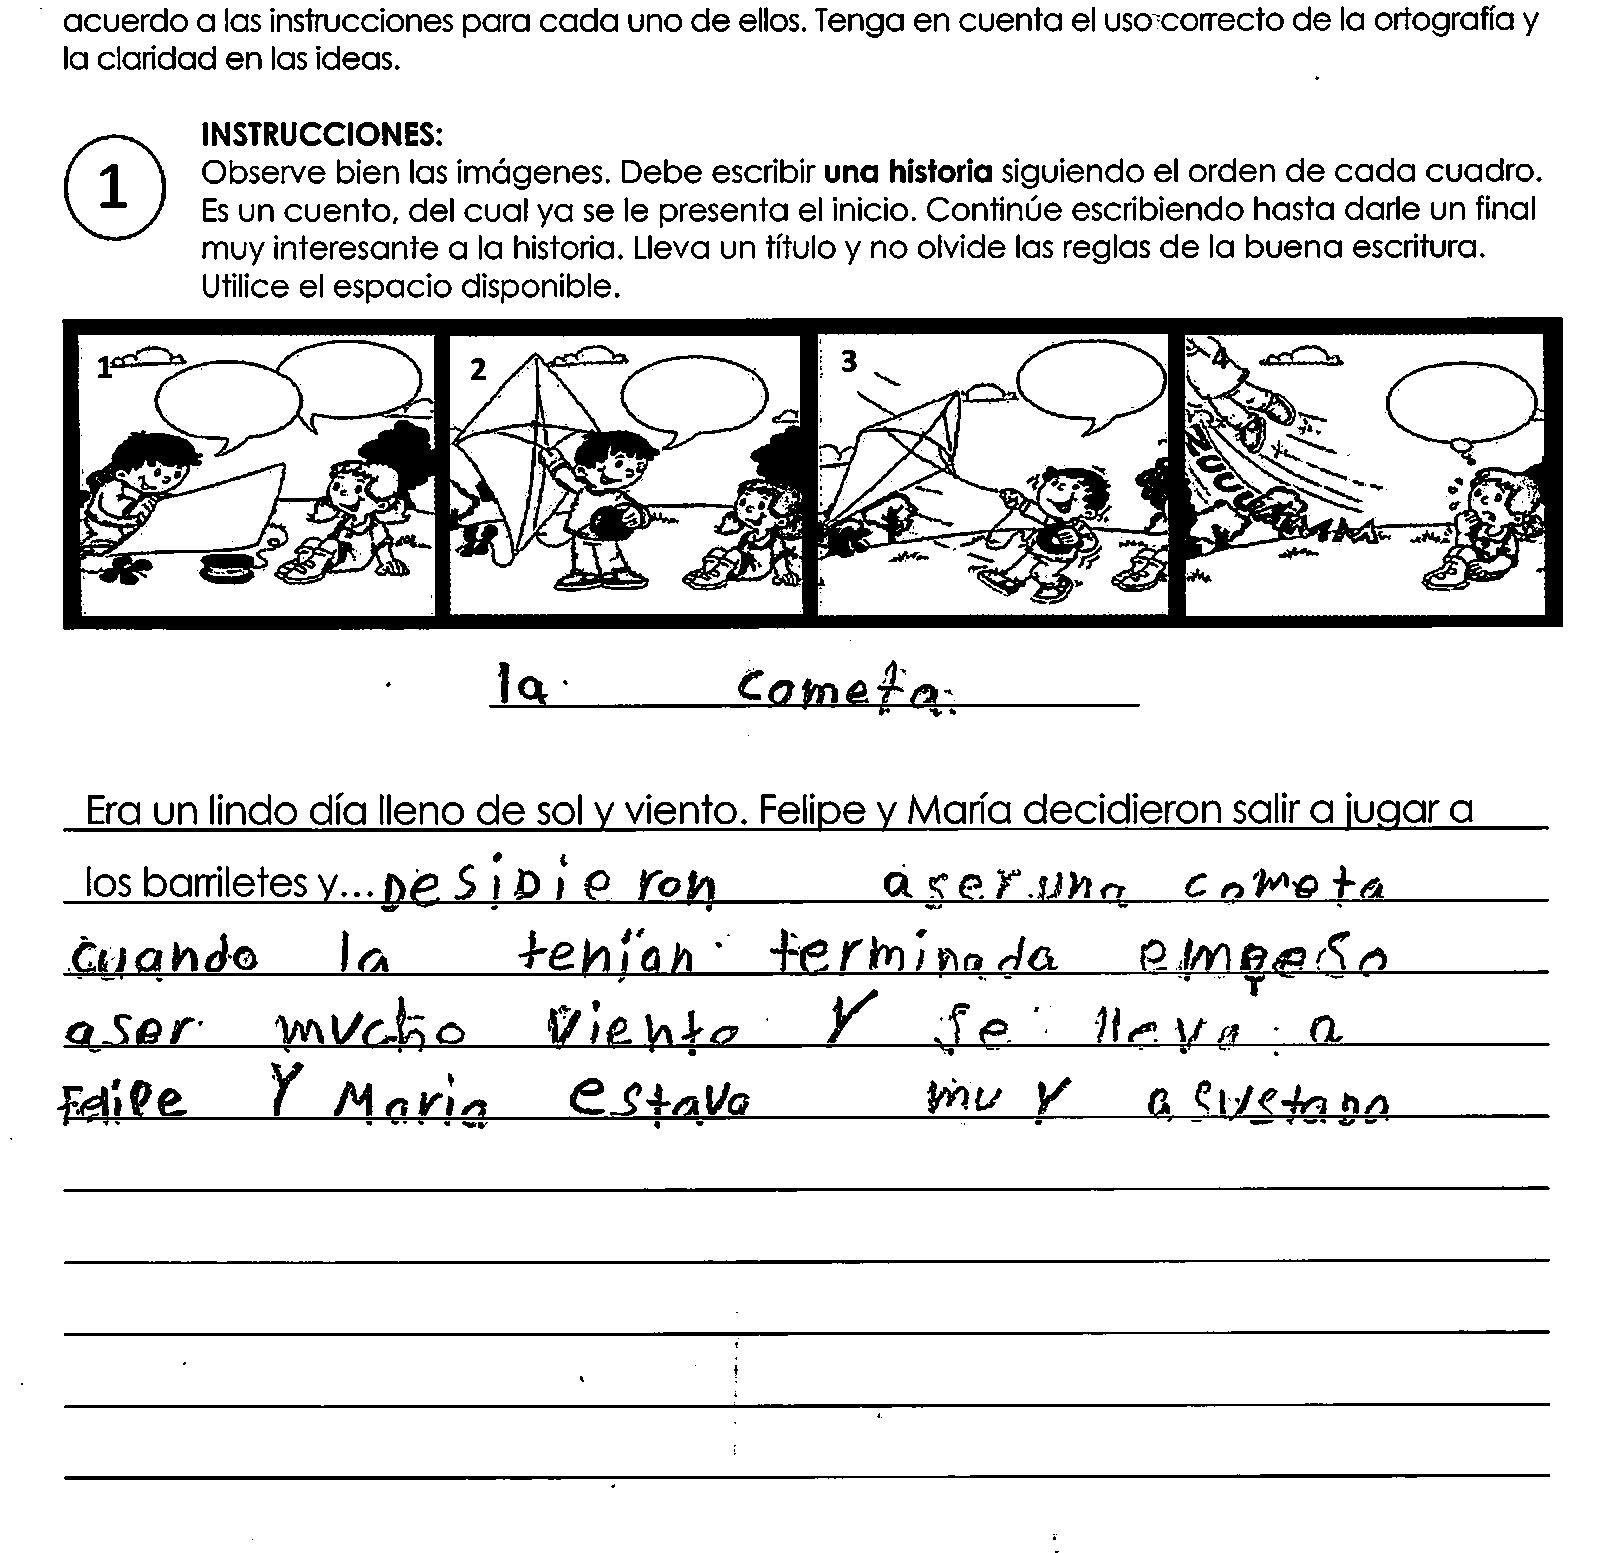 acuerdo a las instrucciones para cada uno de ellos. Tenga en cuenta el uso correcto de la ortografía y
la claridad en las ideas.
1
INSTRUCCIONES:
Observe bien las imágenes. Debe escribir una historia siguiendo el orden de cada cuadro.
Es un cuento, del cual ya se le presenta el inicio. Continúe escribiendo hasta darle un final
muy interesante a la historia. Lleva un título y no olvide las reglas de la buena escritura.
Utilice el espacio disponible.
1 2 3 4
ZUUUUMMM
la cometa
Era un lindo día lleno de sol y viento. Felipe y María decidieron salir a jugar a
los barriletes y... Desidieron aser una cometa
cuando la tenían terminada empeso
aser mucho viento y se lleva a
Felipe y Maria estava muy asustado